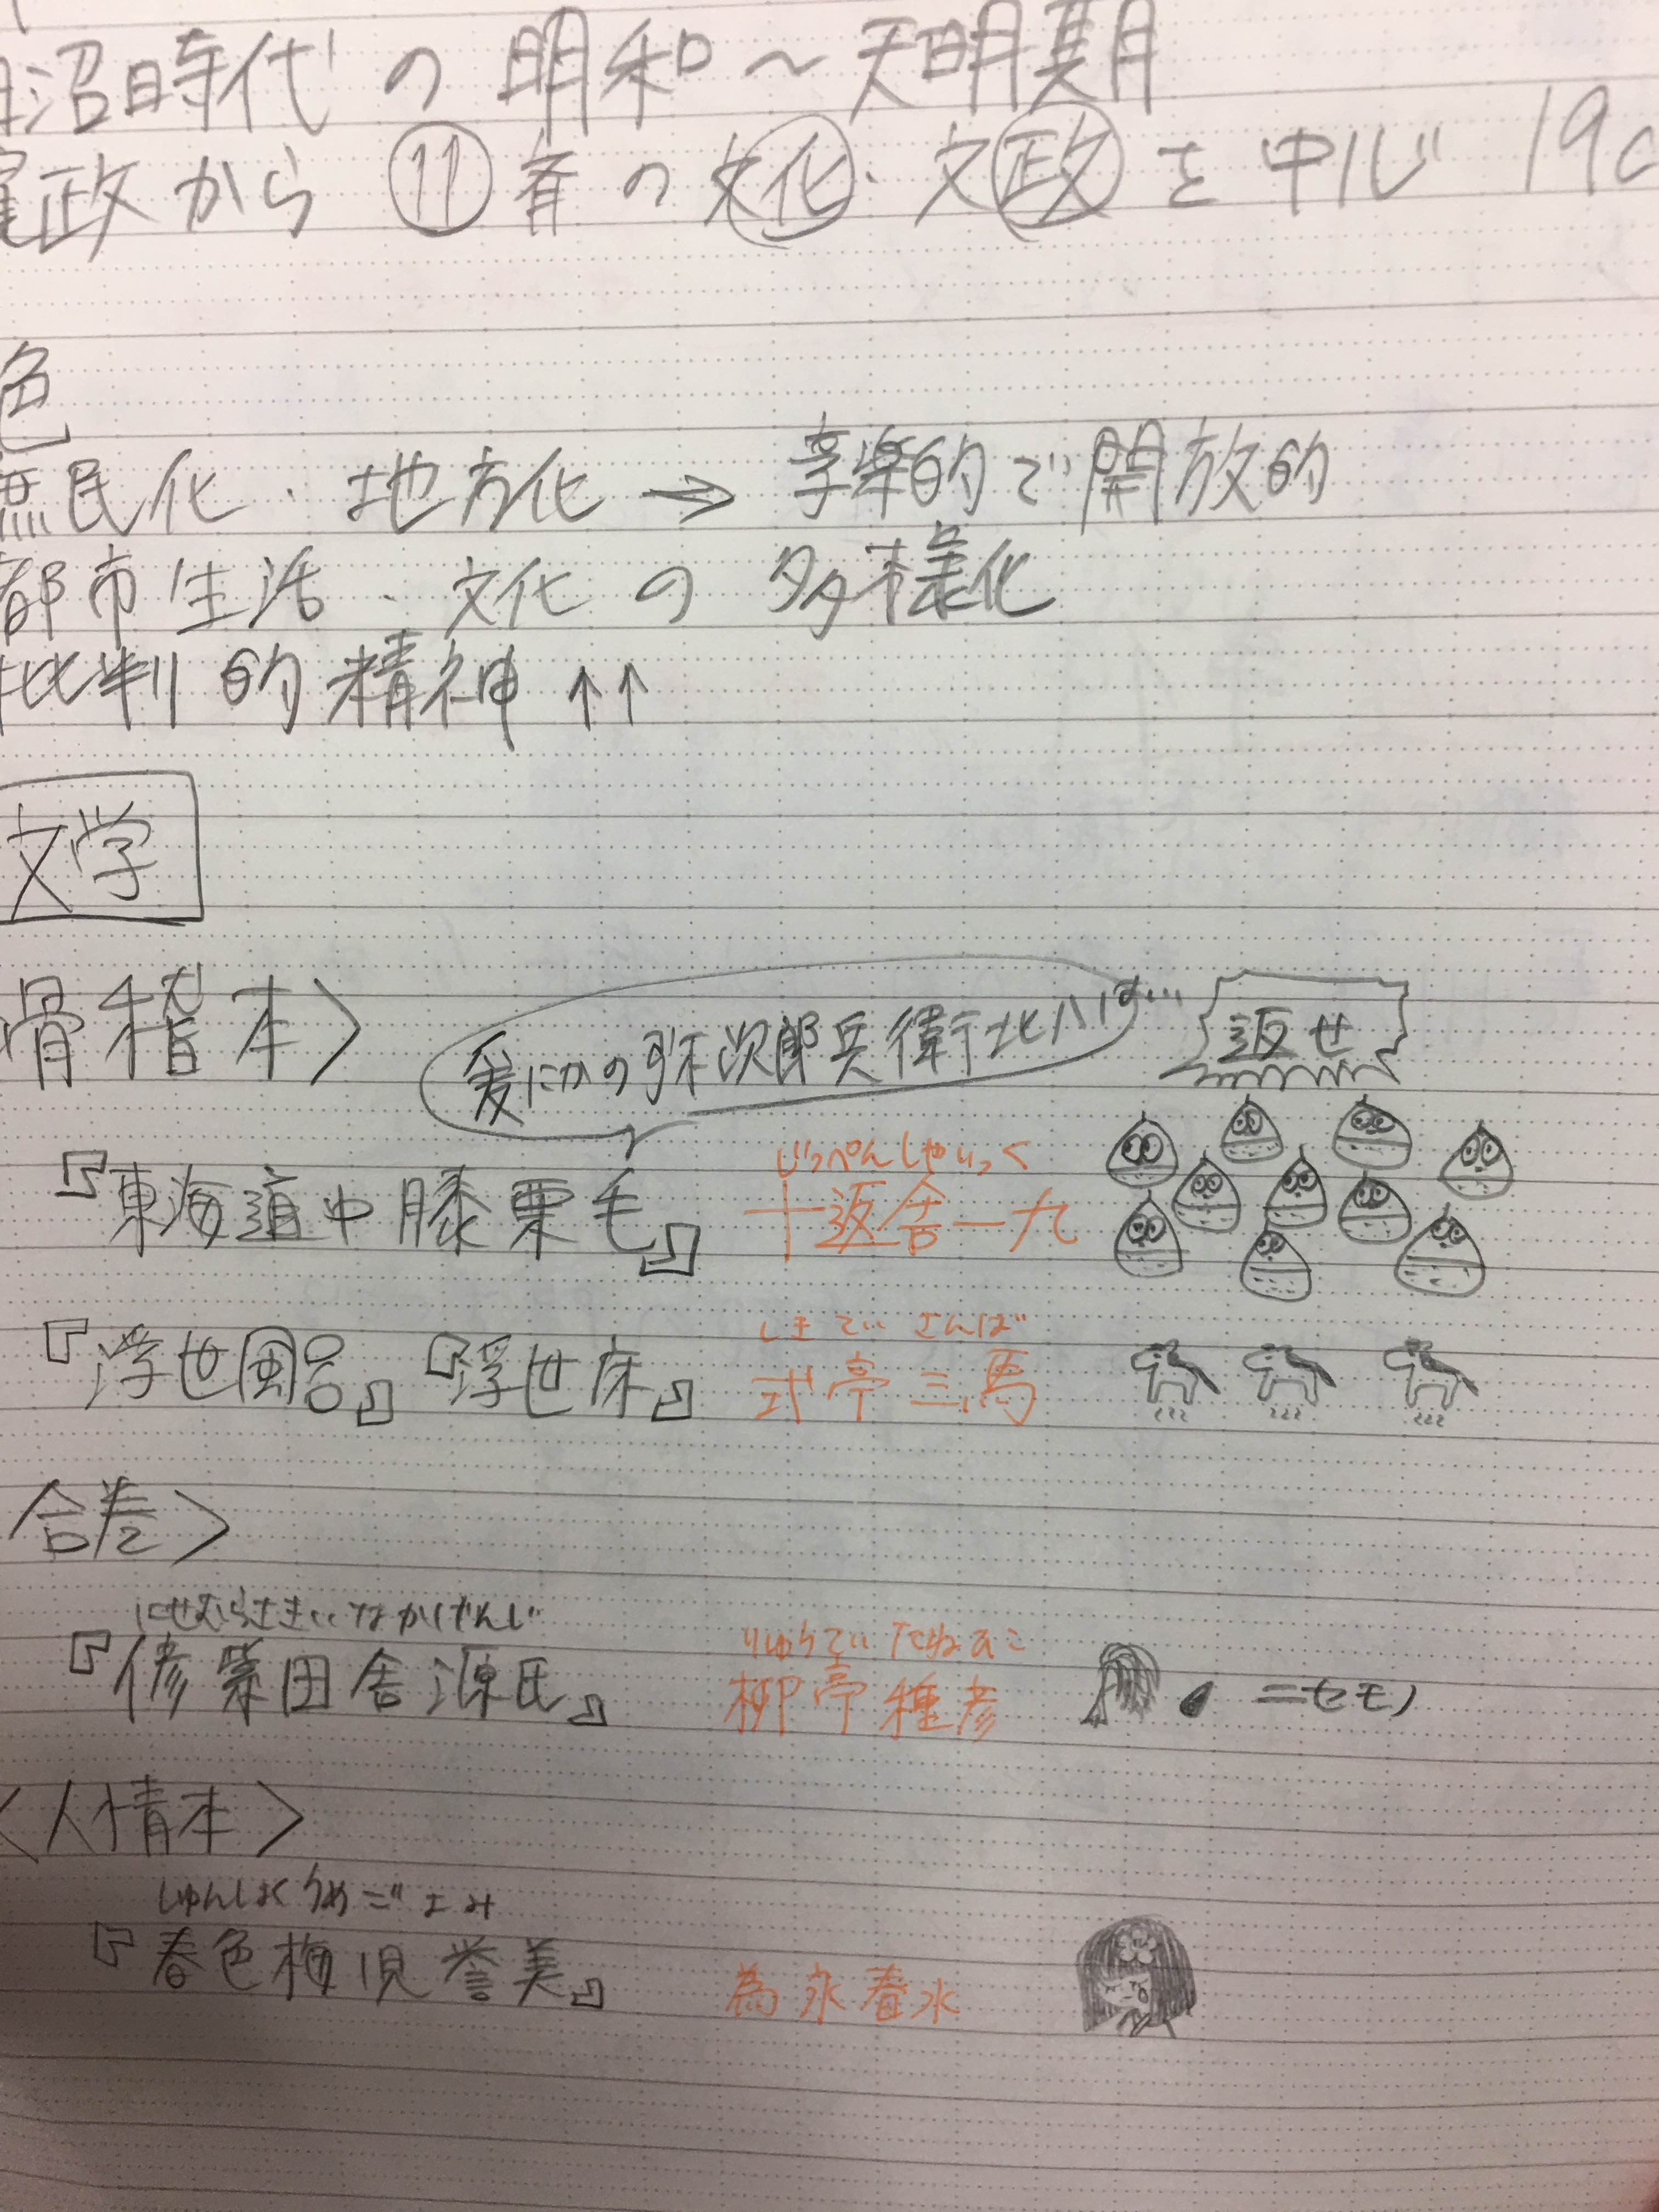 沼時代の明和～天明期
政から⑪斉の文化・文政を中心 19c
色
庶民化・地方化→享楽的で開放的
都市生活、文化の多様化
批判的精神↑↑
文学
滑稽本〉
爰にかの弥次郎兵衛北八は… 返せ
じっぺんしゃいっく
『東海道中膝栗毛』 十返舎一九
しきてい さんば
『浮世風呂』『浮世床』 式亭三馬
合巻〉
にせむらさきいなかげんじ りゅうてい たねひこ
『偐紫田舎源氏』 柳亭種彦 ニセモノ
〈人情本〉
しゅんしょくうめごよみ
『春色梅児誉美』 為永春水